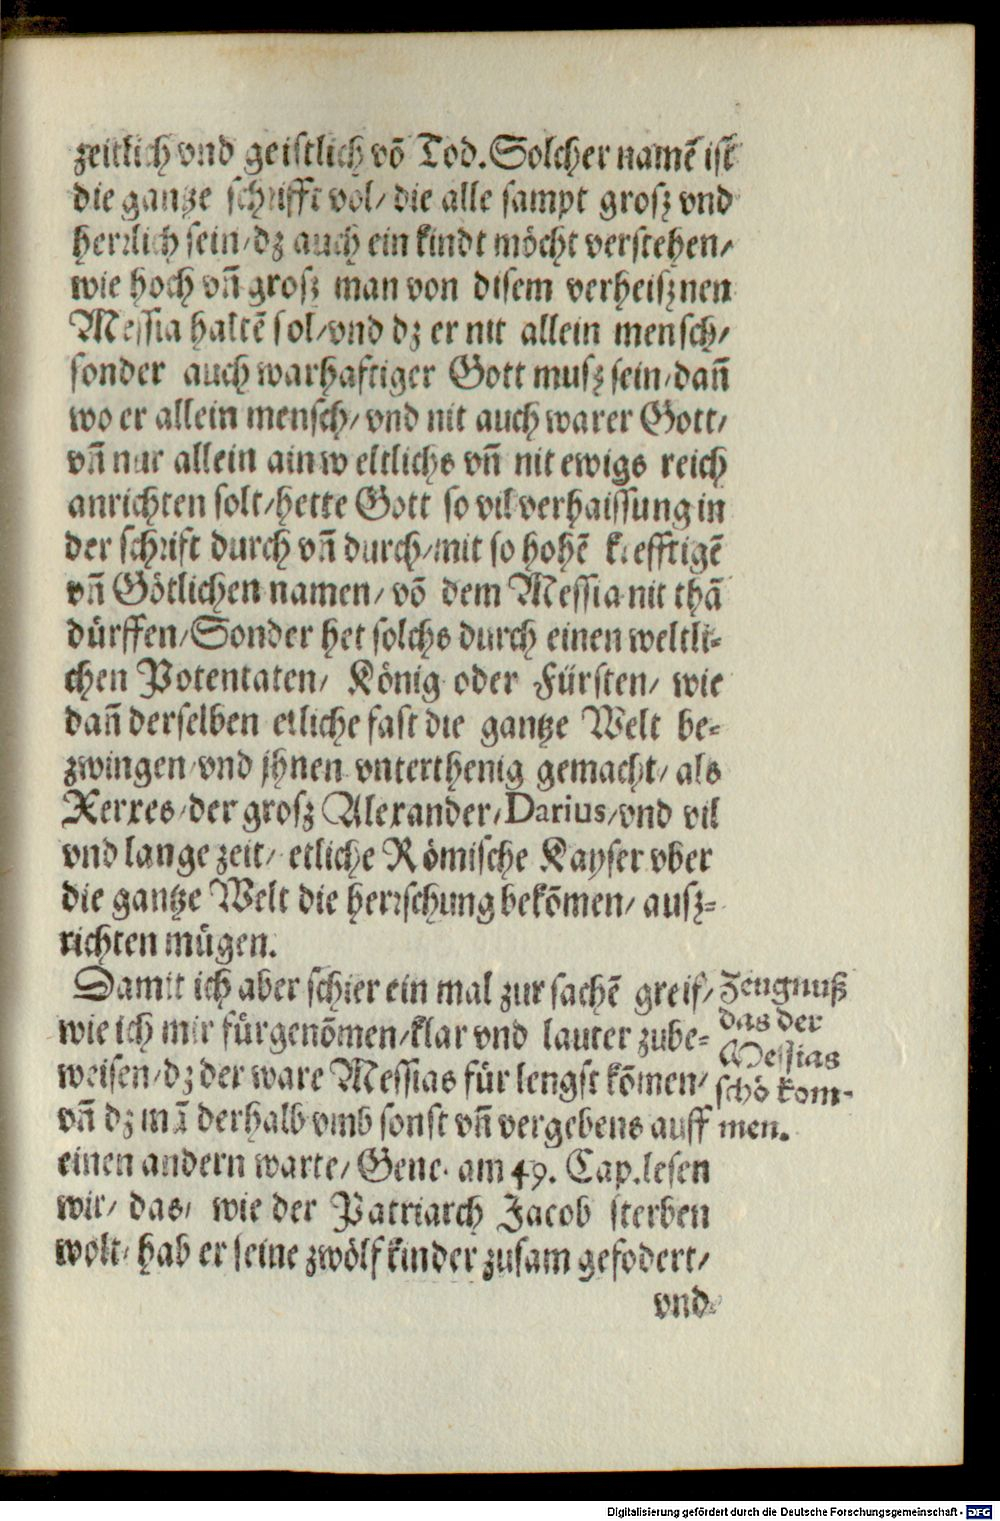 zeitlich vnd geistlich võ Tod. Solcher namẽ ist
die gantze schrifft vol/ die alle sampt grosz vnd
herrlich sein/ dz auch ein kindt möcht verstehen/
wie hoch vñ grosz man von disem verheisznen
Messia haltẽ sol/ vnd dz er nit allein mensch/
sonder auch warhaftiger Gott musz sein/ dañ
wo er allein mensch/ vnd nit auch warer Gott/
vñ nur allein ain weltlichs vñ nit ewigs reich
anrichten solt/ hette Gott so vil verhaissung in
der schrift durch vñ durch/ mit so hohẽ krefftigẽ
vñ Götlichen namen/ võ dem Messia nit thã
dürffen/ Sonder het solchs durch einen weltli-
chen Potentaten/ König oder Fürsten/ wie
dañ derselben etliche fast die gantze Welt be-
zwingen vnd jhnen vnterthenig gemacht/ als
Xerxes/ der grosz Alexander/ Darius/ vnd vil
vnd lange zeit/ etliche Römische Kayser vber
die gantze Welt die herrschung bekõmen/ ausz-
richten mügen.
Damit ich aber schier ein mal zur sachẽ greif/
wie ich mir fürgenõmen/ klar vnd lauter zube-
weisen/ dz der ware Messias für lengst kõmen/
vñ dz mã derhalb vmb sonst vñ vergebens auff
einen andern warte/ Gene. am 49. Cap. lesen
wir/ das/ wie der Patriarch Jacob sterben
wolt/ hab er seine zwölf kinder zusam gefodert/
vnd
Zeugnuß
das der
Messias
schõ kom-
men.
Digitalisierung gefördert durch die Deutsche Forschungsgemeinschaft - DFG